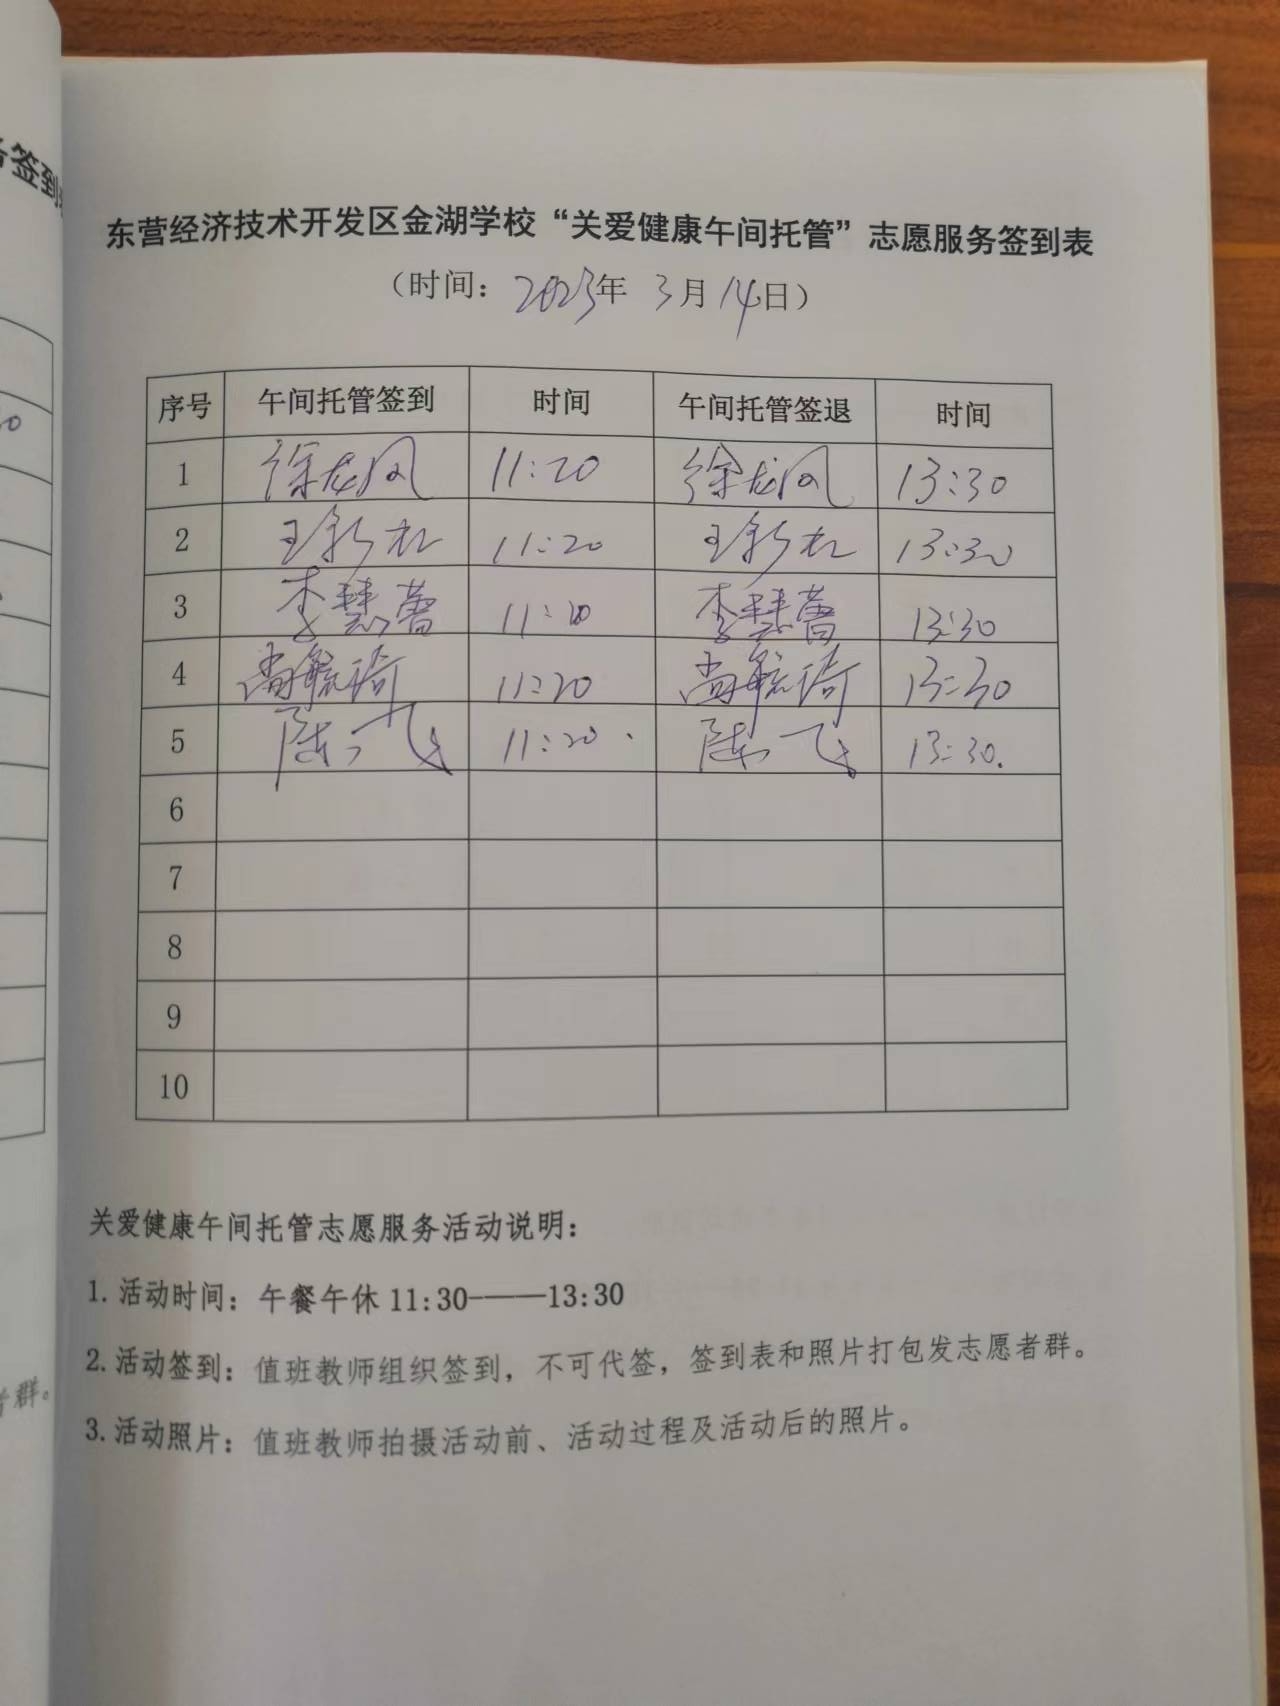 东营经济技术开发区金湖学校“关爱健康午间托管”志愿服务签到表
（时间：2023年 3月14日）
序号 午间托管签到 时间 午间托管签退 时间
1 徐龙凤 11:20 徐龙凤 13:30
2 王新 11:20 王新 13:30
3 李慧蕾 11:20 李慧蕾 13:30
4 尚毓琦 11:20 尚毓琦 13:30
5 陈飞 11:20. 陈飞 13:30.
6
7
8
9
10
关爱健康午间托管志愿服务活动说明：
1. 活动时间：午餐午休 11:30———13:30
2. 活动签到：值班教师组织签到，不可代签，签到表和照片打包发志愿者群。
3. 活动照片：值班教师拍摄活动前、活动过程及活动后的照片。
签到
群。